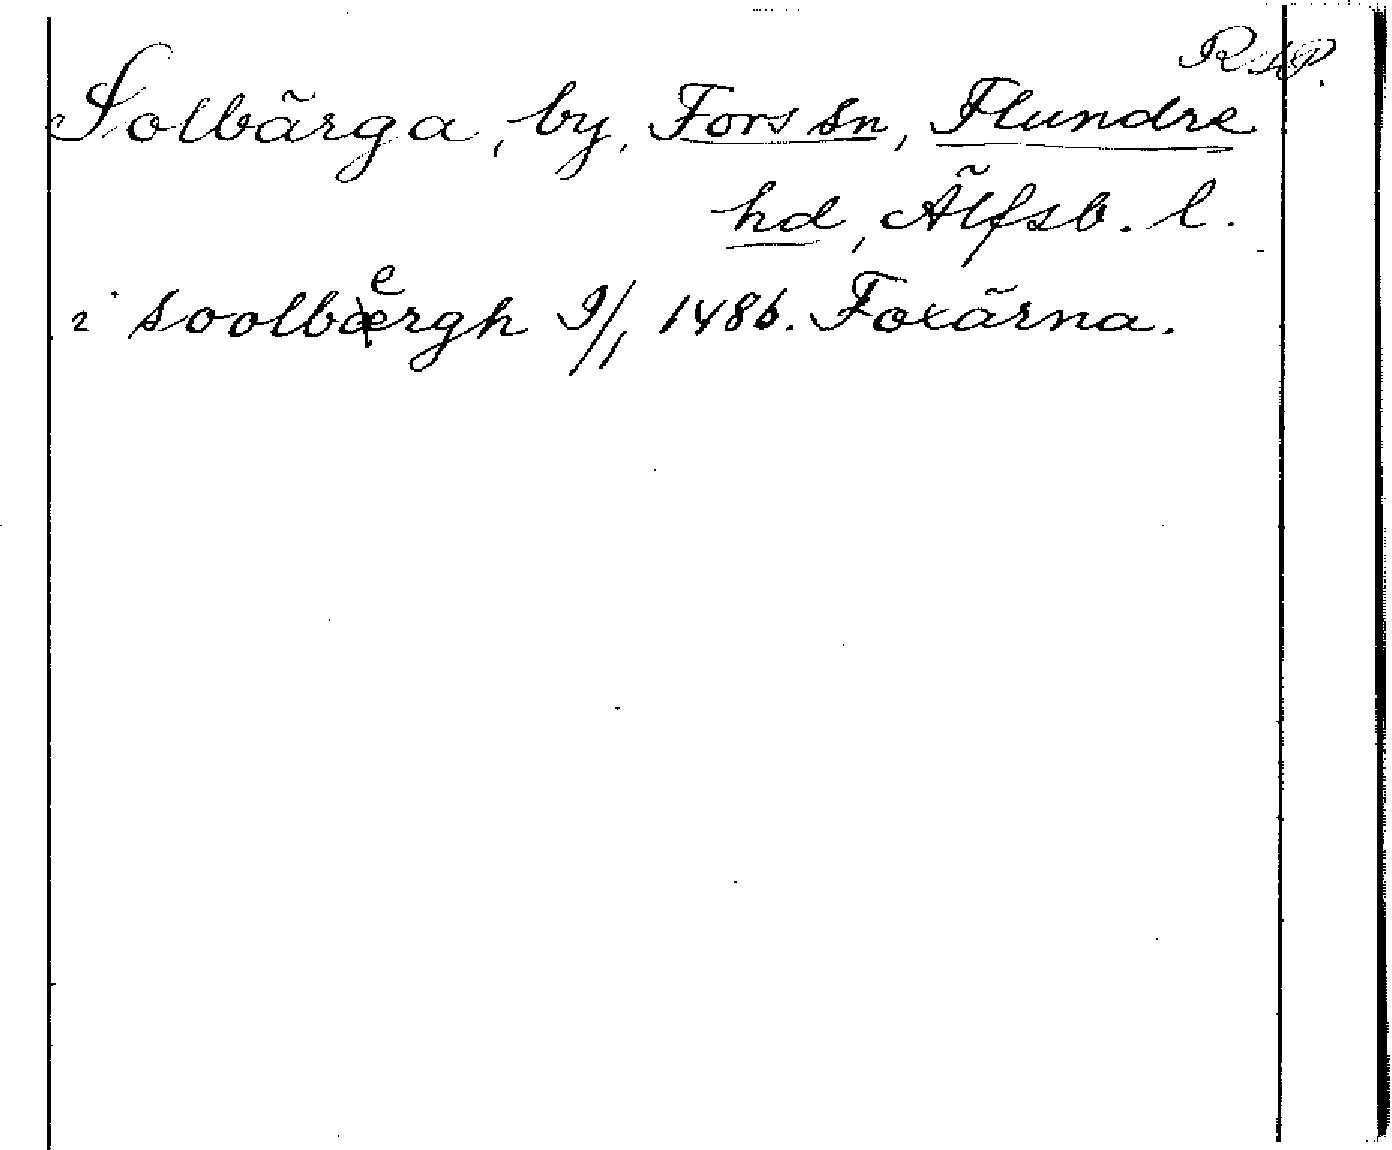 RAP.
Solbärga, by, Fors sn, Flundre
hd, Älfsb. l.
i soolbergh 9/1 1486. Foxärna.